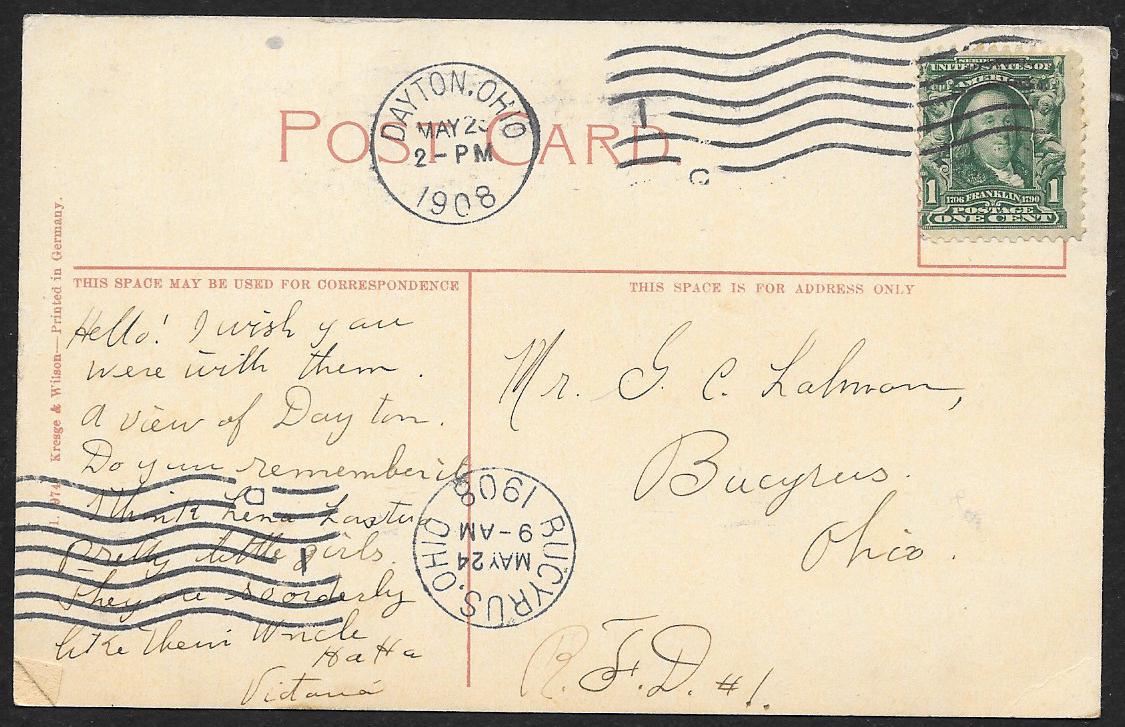 POST CARD
DAYTON, OHIO
MAY 23
2-PM
1908
C
SERIES 1902
UNITED STATES OF
AMERICA
1 1706 FRANKLIN 1790 1
POSTAGE
ONE CENT
THIS SPACE MAY BE USED FOR CORRESPONDENCE
THIS SPACE IS FOR ADDRESS ONLY
Kresge & Wilson—Printed in Germany.
Hello! I wish you
were with them.
A view of Dayton.
Do you remember it
I think Lena has two
pretty little girls.
They are so orderly
like their Uncle
Ha Ha
Mr. G. C. Lahman,
Bucyrus.
Ohio.
R. F. D. #1.
BUCYRUS, OHIO
MAY 24
9-AM
1908
D